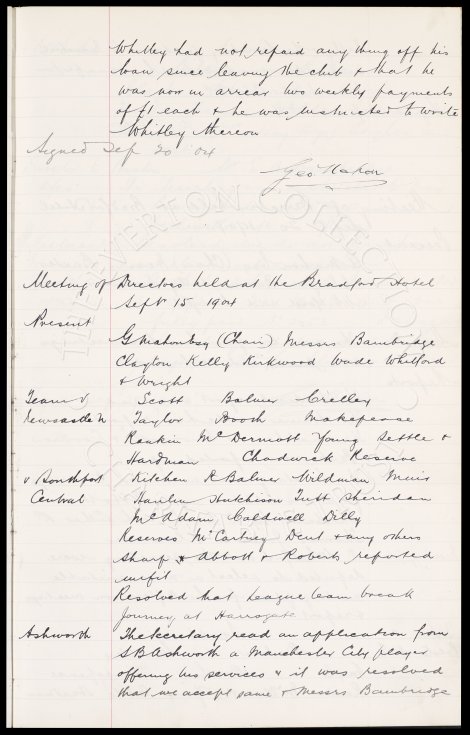 Whitley had not repaid anything off his
loan since leaving the club & that he
was now in arrear two weekly payments
of £1 each & he was instructed to write
Whitley thereon
Signed Sep 20 '04
Geo Mahon
THE EVERTON COLLECTION
Meeting of Directors held at the Bradford Hotel
Sept 15 1904
Present
G Mahon Esq (Chair) Messrs Bambridge
Clayton Kelly Kirkwood Wade Whitford
& Wright
Team v Scott Balmer Crelley
Newcastle U Taylor Booth Makepeace
Rankin McDermott Young Settle &
Hardman Chadwick Reserve
v Southport Kitchen R Balmer Wildman Muir
Central Hutchison Tuft Sheridan
McAdam Caldwell Dilly
Reserves McCartney Dent & any others
Sharp & Abbott & Roberts reported
unfit
Resolved that League team break
journey at Harrogate
Ashworth The Secretary read an application from
S B Ashworth a Manchester City player
offering his services & it was resolved
that we accept same & Messrs Bambridge